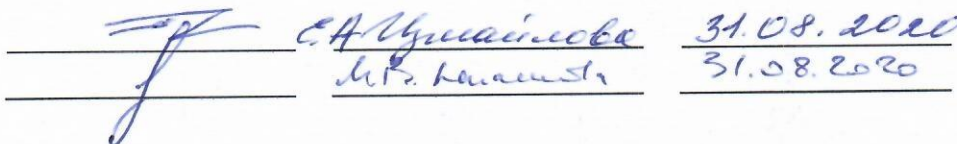 Е.А Измайлова 31.08.2020
М.В. 31.08.2020